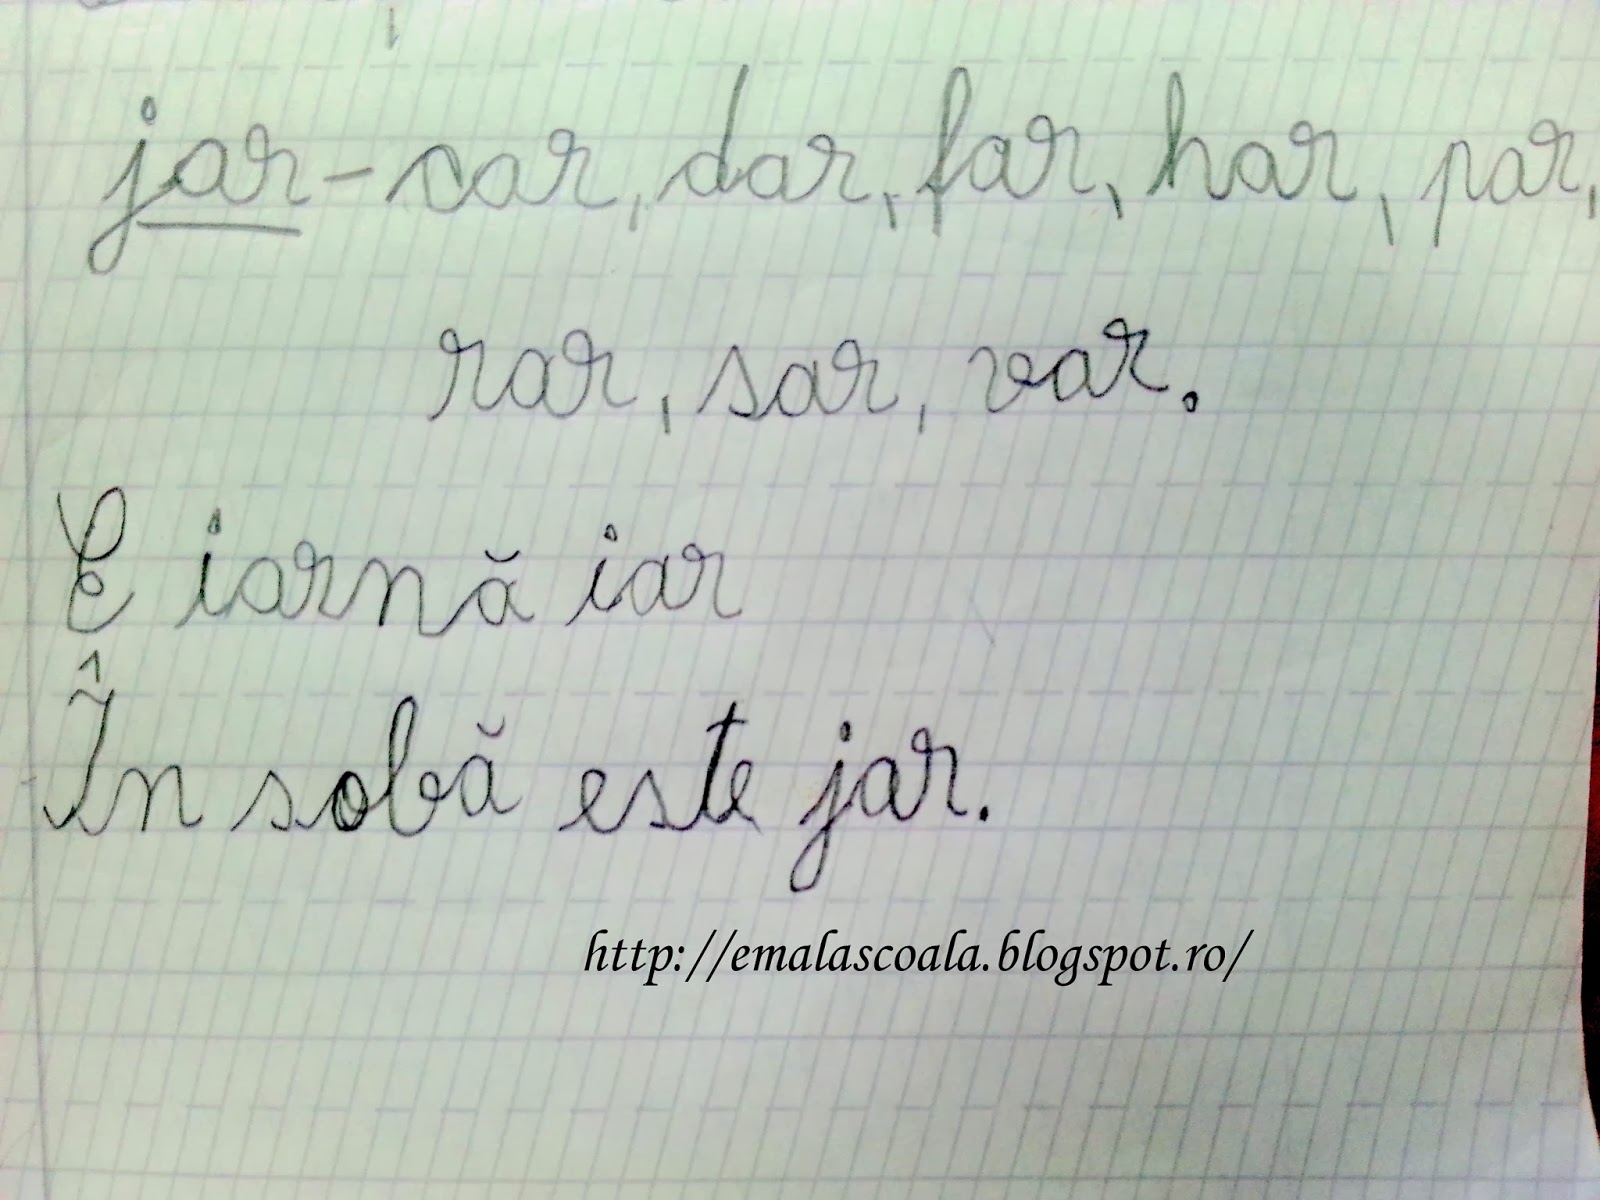 jar - car, dar, far, har, par,
rar, sar, var.
E iarnă iar
În sobă este jar.
http://emalascoala.blogspot.ro/